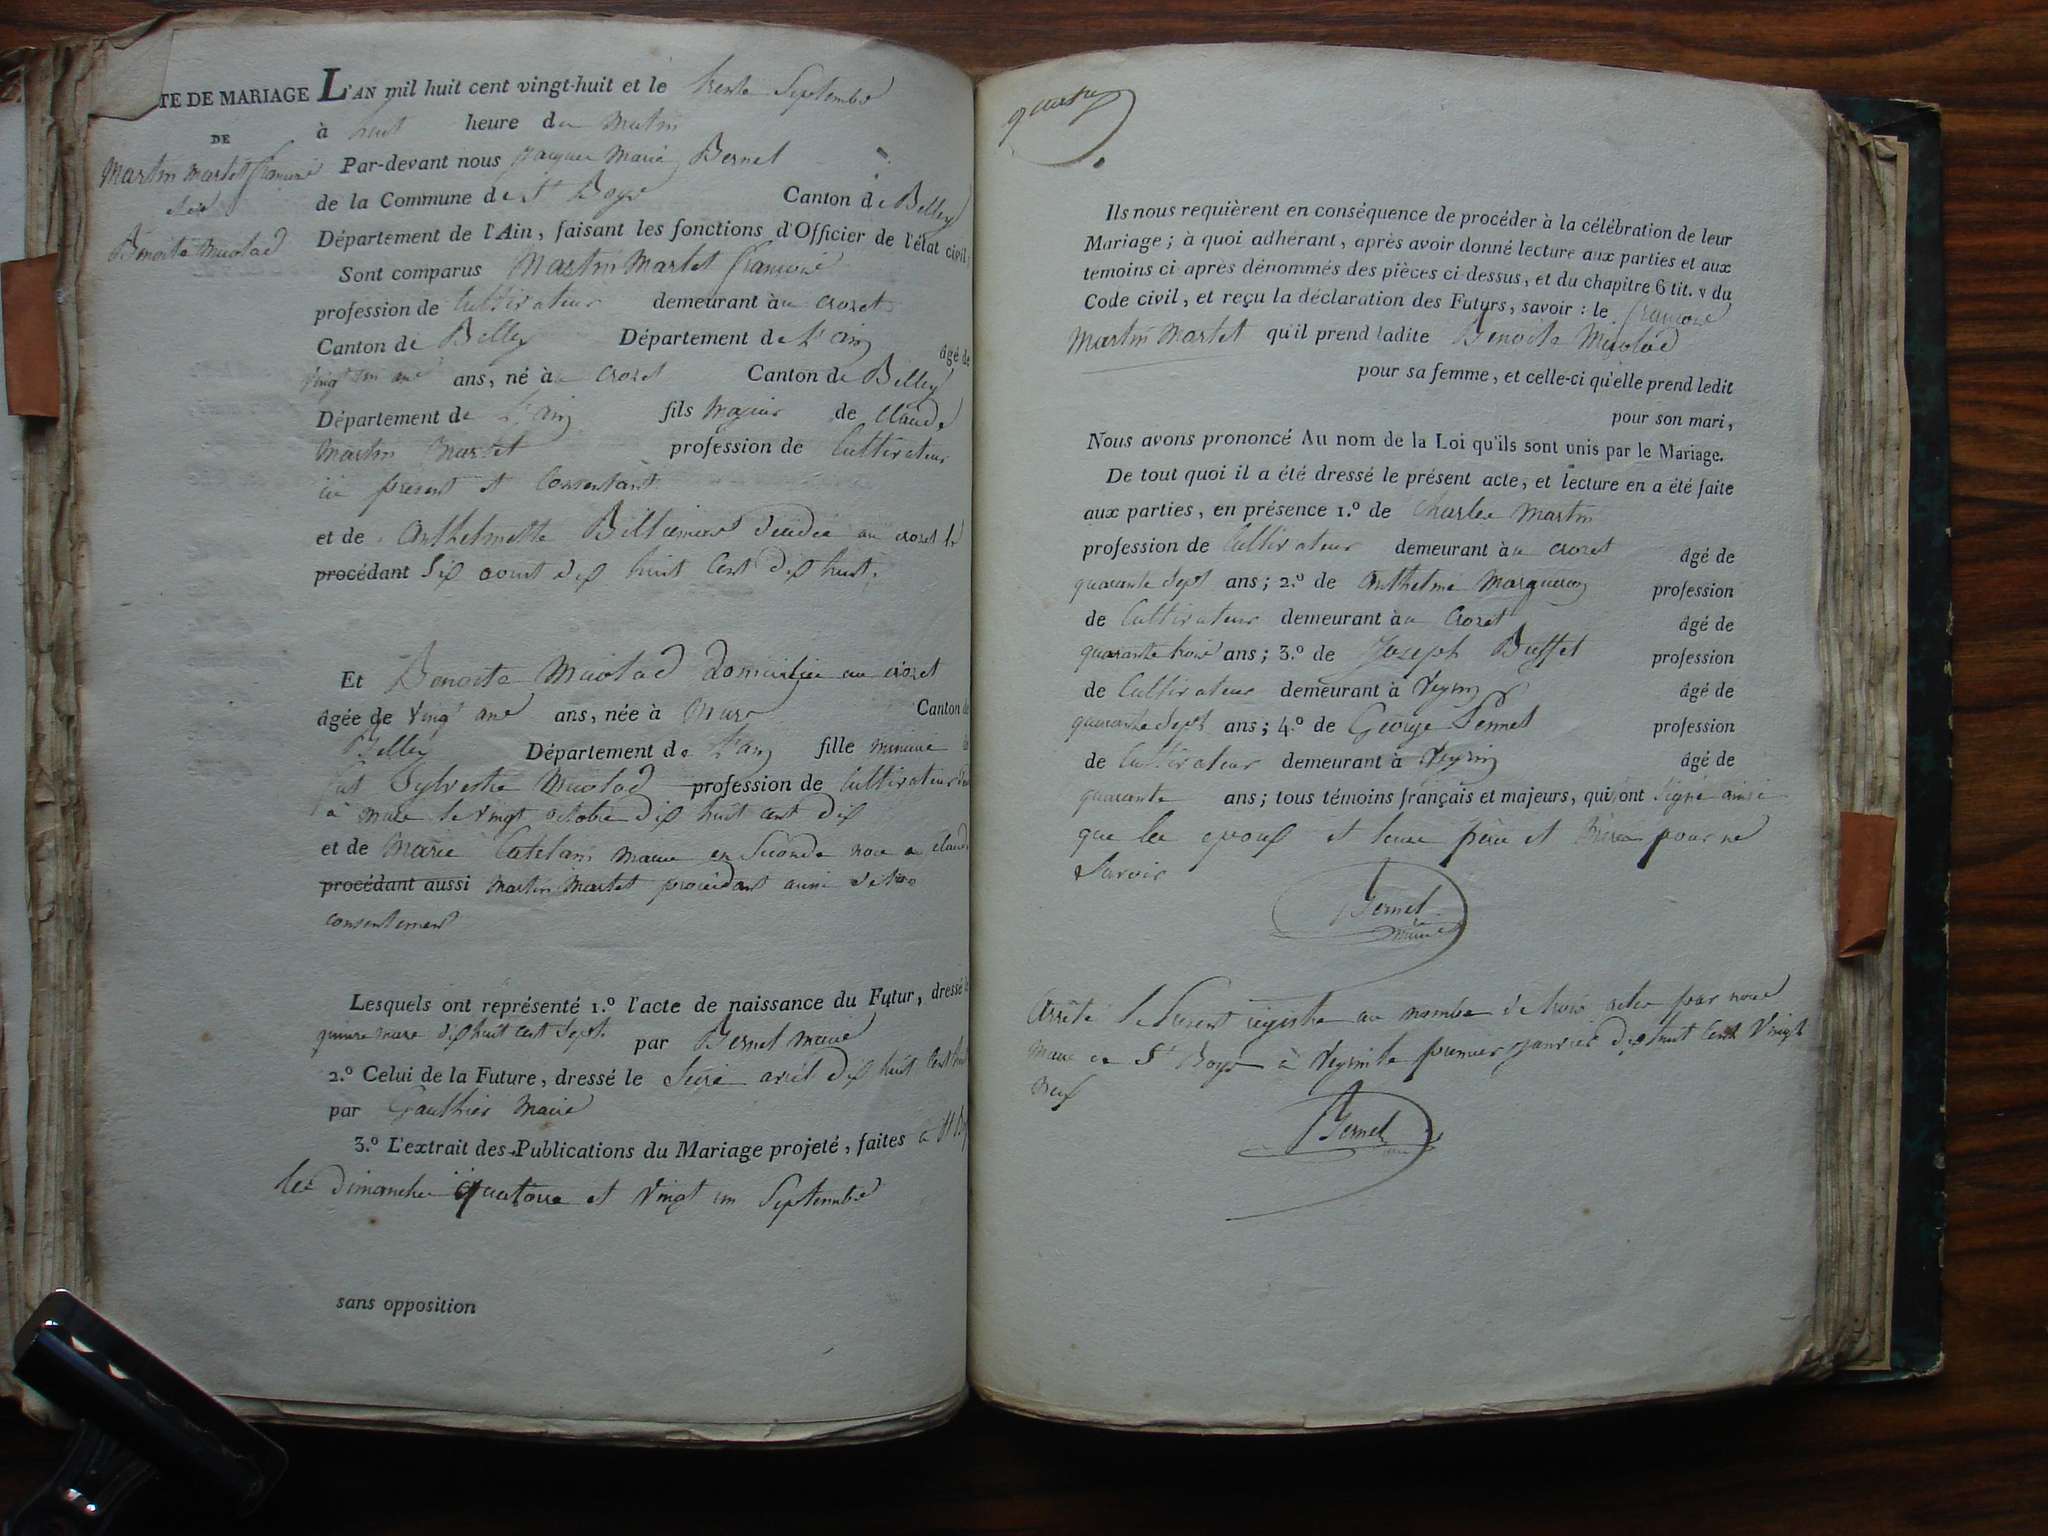 TE DE MARIAGE L'AN mil huit cent vingt-huit et le trente Septembre
DE à huit heure du Matin
Martin Martet francois Par-devant nous Jacques Marie Bernel
de la Commune de St Boys Canton de Belley
Benoite Miolad Département de l'Ain, faisant les fonctions d'Officier de l'état civil;
Sont comparus Martin Martet francois
profession de Cultivateur demeurant au crozet
Canton de Belley Département de L'ain âgé de
vingt un ans ans, né au Crozet Canton de Belley
Département de L'ain fils Majeur de Claude
Martin Martet profession de Cultivateur
ici present et Consentant
et de Anthelmette décédée au crozet le
procédant Six aout dix huit Cent dix huit.
Et Benoite Miolad domiciliée au crozet
âgée de vingt ans ans, née à Mure Canton de
Belley Département de L'ain fille mineure
Sylvestre Miolad profession de Cultivateur
à mure le vingt octobre dix huit cent dix
et de Marie Catelani mariée en Seconde noce a claude
procédant aussi Martin Martet procédant aussi de
consentement
Lesquels ont représenté 1.º l'acte de naissance du Futur, dressé le
quinze mars dix huit cent Sept. par Bernel maire
2.º Celui de la Future, dressé le Seize avril dix huit Cent huit
par Gauthier Maire
3.º L'extrait des Publications du Mariage projeté, faites a St Boys
les dimanches quatorze et vingt un Septembre
sans opposition
quatre
Ils nous requièrent en conséquence de procéder à la célébration de leur
Mariage; à quoi adhérant, après avoir donné lecture aux parties et aux
temoins ci-après dénommés des pièces ci-dessus, et du chapitre 6 tit. v du
Code civil, et reçu la déclaration des Futurs, savoir: le francois
Martin Martet qu'il prend ladite Benoite Miolad
pour sa femme, et celle-ci qu'elle prend ledit
pour son mari,
Nous avons prononcé Au nom de la Loi qu'ils sont unis par le Mariage.
De tout quoi il a été dressé le présent acte, et lecture en a été faite
aux parties, en présence 1.º de Charles Martin
profession de Cultivateur demeurant au crozet âgé de
quarante Sept ans; 2.º de Anthelme Margueron profession
de Cultivateur demeurant au Crozet âgé de
quarante trois ans; 3.º de Joseph Buffet profession
de Cultivateur demeurant à Veyrin âgé de
quarante Sept ans; 4.º de George Pernet profession
de Cultivateur demeurant à Veyrin âgé de
quarante ans; tous témoins français et majeurs, qui ont Signé ainsi
que les epoux et leurs père et mère pour ne
Savoir
Bernel
maire
Arrêté le Present registre au nombre de trois actes par nous
Maire de St Boys à Veyrin le premier janvier dix huit Cent Vingt
neuf
Bernel